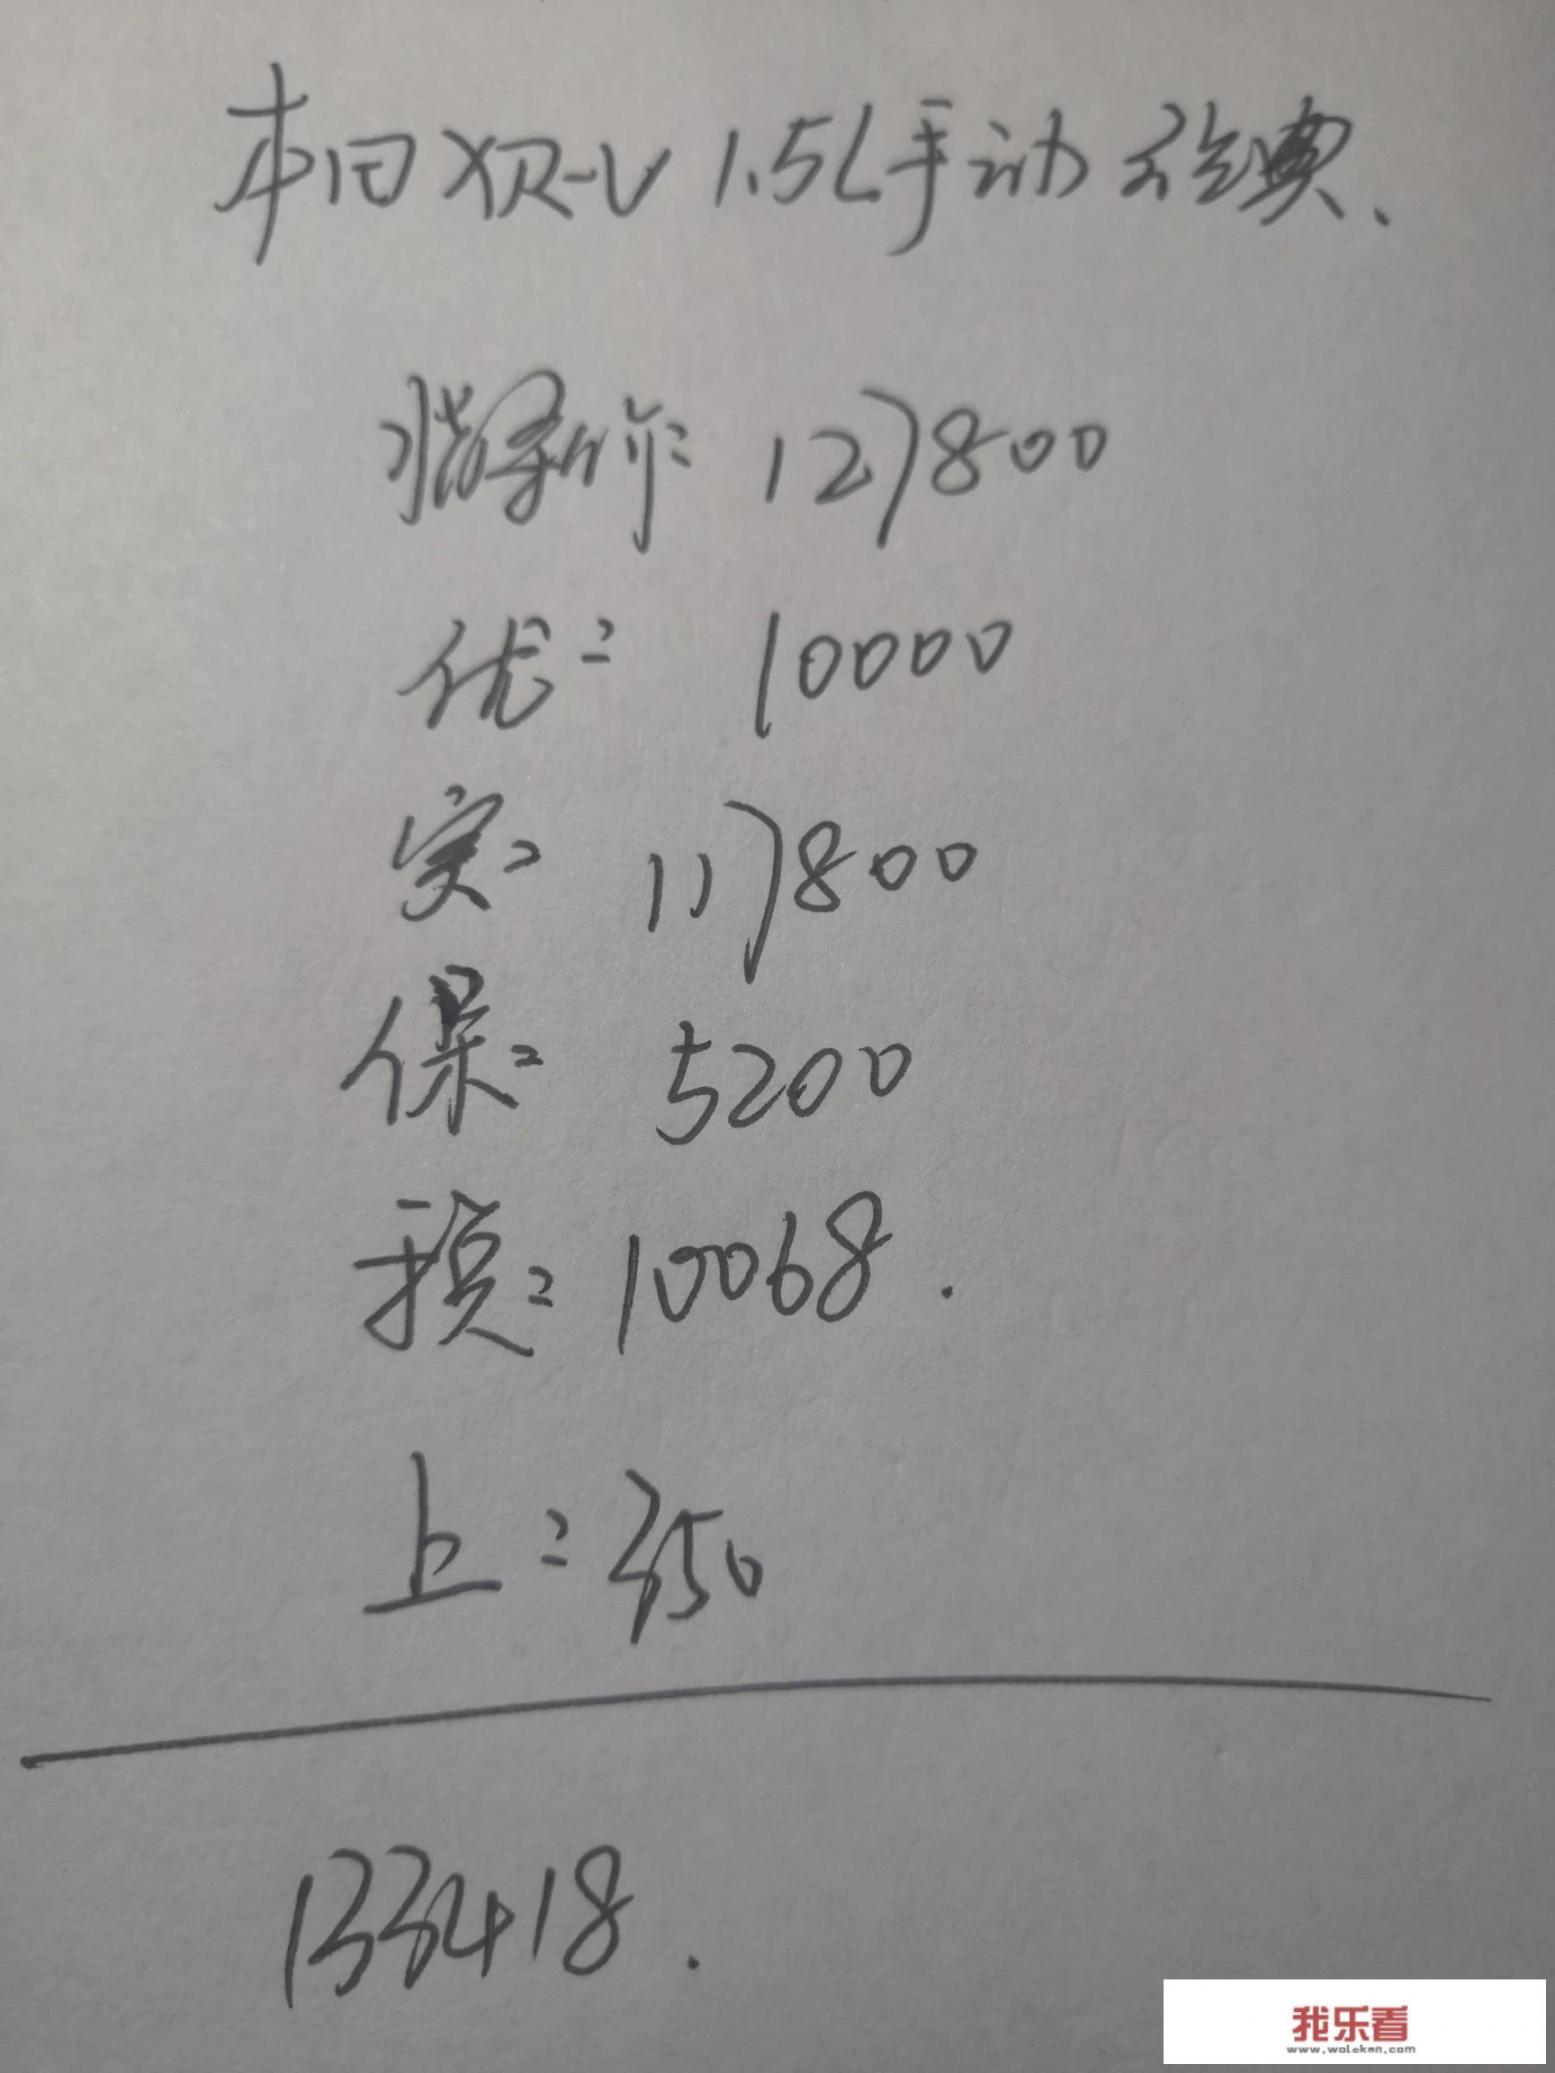 本田XR-V 1.5L手动经典、
指导价: 127800
优: 10000
实: 117800
保: 5200
税: 10068.
上: 350
133418.
我乐看
www.woleken.com